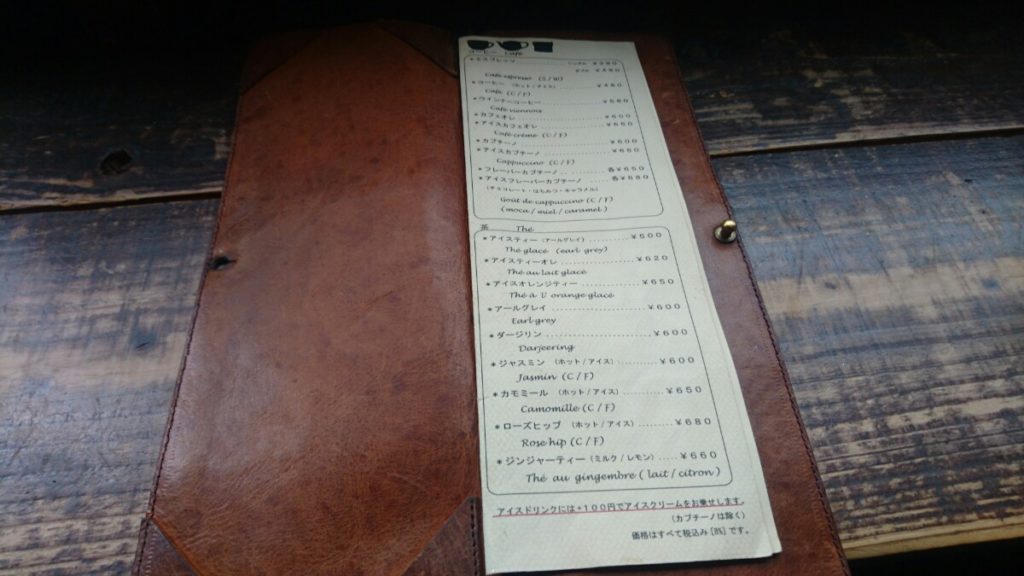 コーヒー Café
*エスプレッソ シングル ¥380
ダブル ¥480
Café espresso (S / W)
*コーヒー (ホット / アイス) ¥480
Café (C / F)
*ウインナーコーヒー ¥580
Café viennois
*カフェオレ ¥600
*アイスカフェオレ ¥650
Café crème (C / F)
*カプチーノ ¥600
*アイスカプチーノ ¥650
Cappuccino (C / F)
*フレーバーカプチーノ 各¥650
*アイスフレーバーカプチーノ 各¥680
(チョコレート・はちみつ・キャラメル)
Goût de cappuccino (C / F)
(moca / miel / caramel)
茶 Thé
*アイスティー (アールグレイ) ¥600
Thé glacé (earl grey)
*アイスティーオレ ¥620
Thé au lait glacé
*アイスオレンジティー ¥650
Thé à l' orange glacé
*アールグレイ ¥600
Earl grey
*ダージリン ¥600
Darjeering
*ジャスミン (ホット / アイス) ¥600
Jasmin (C / F)
*カモミール (ホット / アイス) ¥650
Camomille (C / F)
*ローズヒップ (ホット / アイス) ¥680
Rose hip (C / F)
*ジンジャーティー (ミルク / レモン) ¥660
Thé au gingembre ( lait / citron )
アイスドリンクには+100円でアイスクリームをお乗せします。
(カプチーノは除く)
価格はすべて税込み [8%] です。